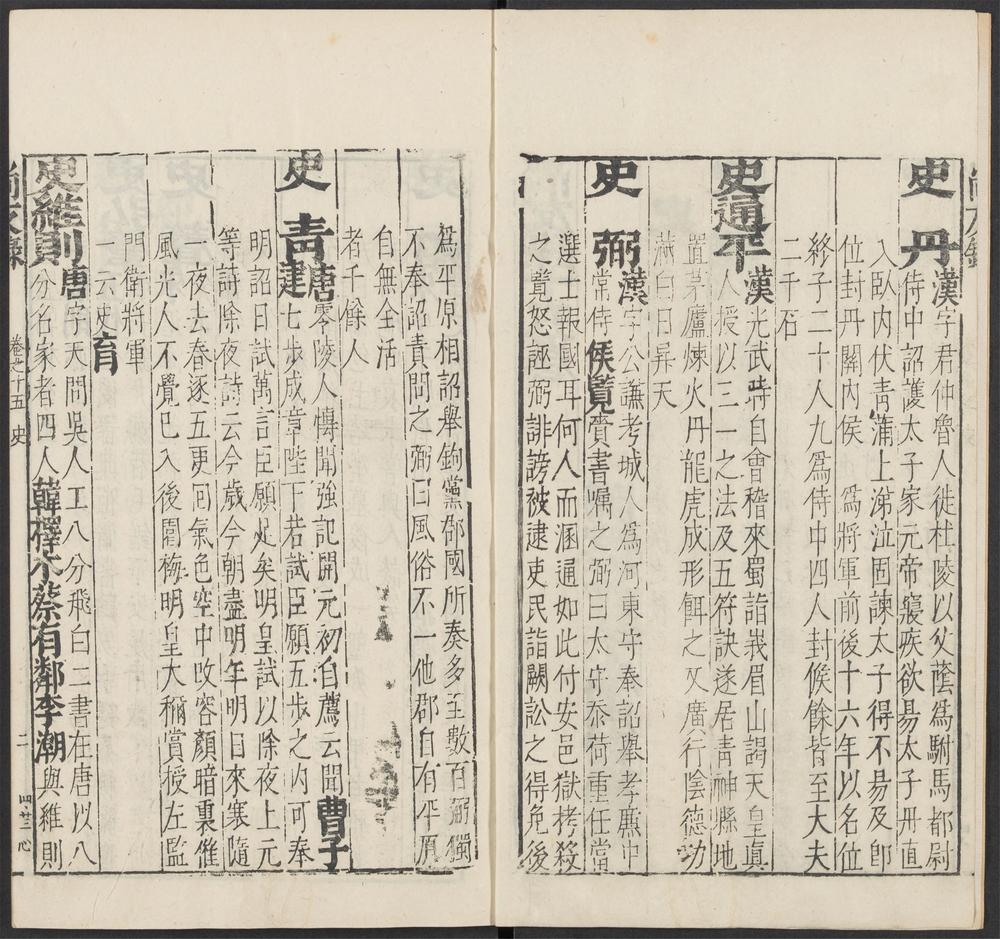 史丹漢字君仲魯人徙杜陵以父蔭為駙馬都尉
侍中詔護太子家元帝寢疾欲易太子丹直
入臥內伏青蒲上涕泣固諫太子得不易及即
位封丹關內侯為將軍前後十六年以名位
終子二十人九為侍中四人封侯餘皆至大夫
二千石
史通平漢光武時自會稽來蜀詣峩眉山謁天皇真
人授以三一之法及五符訣遂居青神縣地
置茅廬煉火丹龍虎成形餌之又廣行陰德功
滿白日昇天
史弼漢字公謙考城人為河東守奉詔舉孝廉中
常侍侯覽賫書囑之弼曰太守忝荷重任當
選士報國耳何人而涸通如此付安邑獄栲殺
之覽怒誣弼誹謗被逮吏民詣闕訟之得免後
為平原相詔舉鉤黨郡國所奏多至數百弼獨
不奉詔責問之弼曰風俗不一他郡自有平原
自無全活
者千餘人
史青唐零陵人慱聞強記開元初自薦云聞曹子
建七步成章陛下若試臣願五步之內可奉
明詔日試萬言臣願足矣明皇試以除夜上元
等詩除夜詩云今歲今朝盡明年明日來寒隨
一夜去春逐五更回氣色空中改容顏暗裏催
風光人不覺已入後園梅明皇大稱賞授左監
門衛將軍
一云史育
史維則唐字天問吳人工八分飛白二書在唐以八
分名家者四人韓擇木蔡有鄰李潮與維則
卷之十五 史
二
四廿三